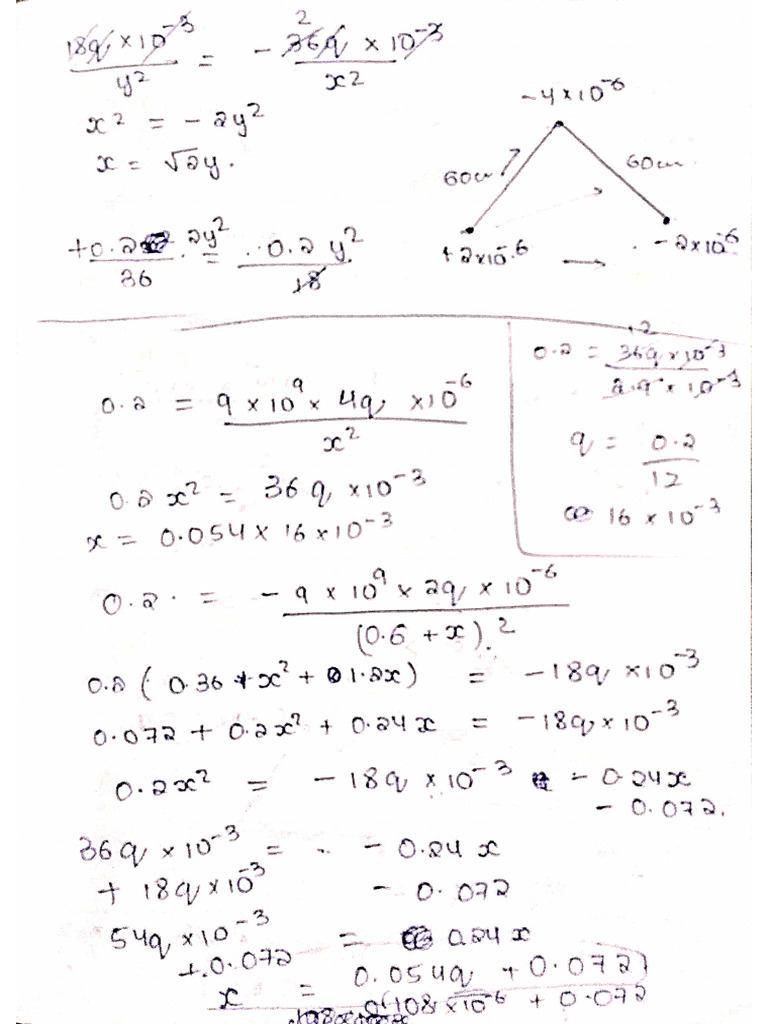 18q × 10⁻³ / y² = - 2 36q × 10⁻³ / x²
x² = - 2y²
x = √2y.
+0.2 · 2y² / 36 = 0.2 y² / 18
-4×10⁻⁶
60cm
60cm
+2×10⁻⁶
-2×10⁻⁶
0.2 = 9 × 10⁹ × 4q × 10⁻⁶ / x²
0.2x² = 36q × 10⁻³
x = 0.054 × 16 × 10⁻³
0.2 = 36q × 10⁻³ /
q = 0.2 / 12
16 × 10⁻³
0.2 = - 9 × 10⁹ × 2q × 10⁻⁶ / (0.6 + x)²
0.2 ( 0.36 + x² + 1.2x) = - 18q × 10⁻³
0.072 + 0.2x² + 0.24x = - 18q × 10⁻³
0.2x² = - 18q × 10⁻³ - 0.24x
- 0.072.
36q × 10⁻³ = - 0.24x
+ 18q × 10⁻³ - 0.072
54q × 10⁻³ = 0.24x
+ 0.072
x = 0.054q + 0.072
108 × 10⁻⁶ + 0.072